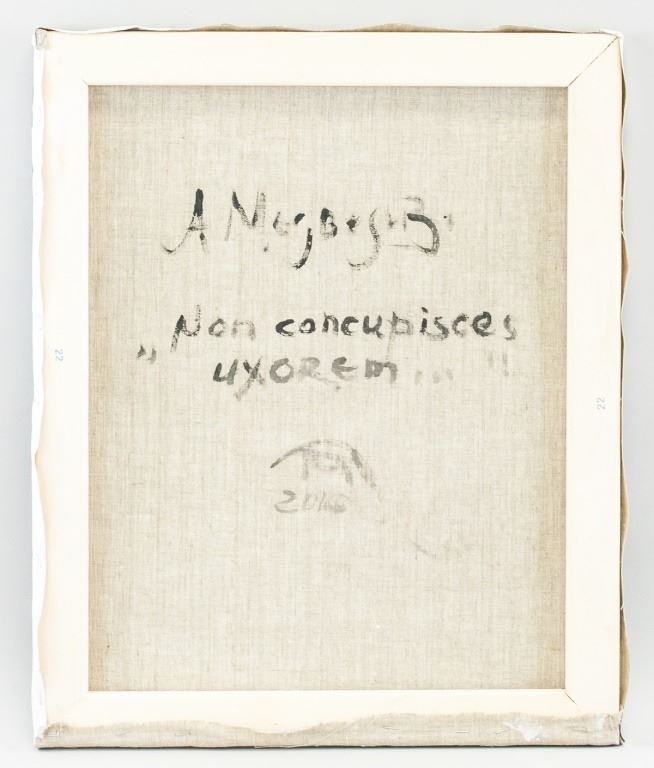 А Медведев
„Non concupisces
uxorem..."
22
22